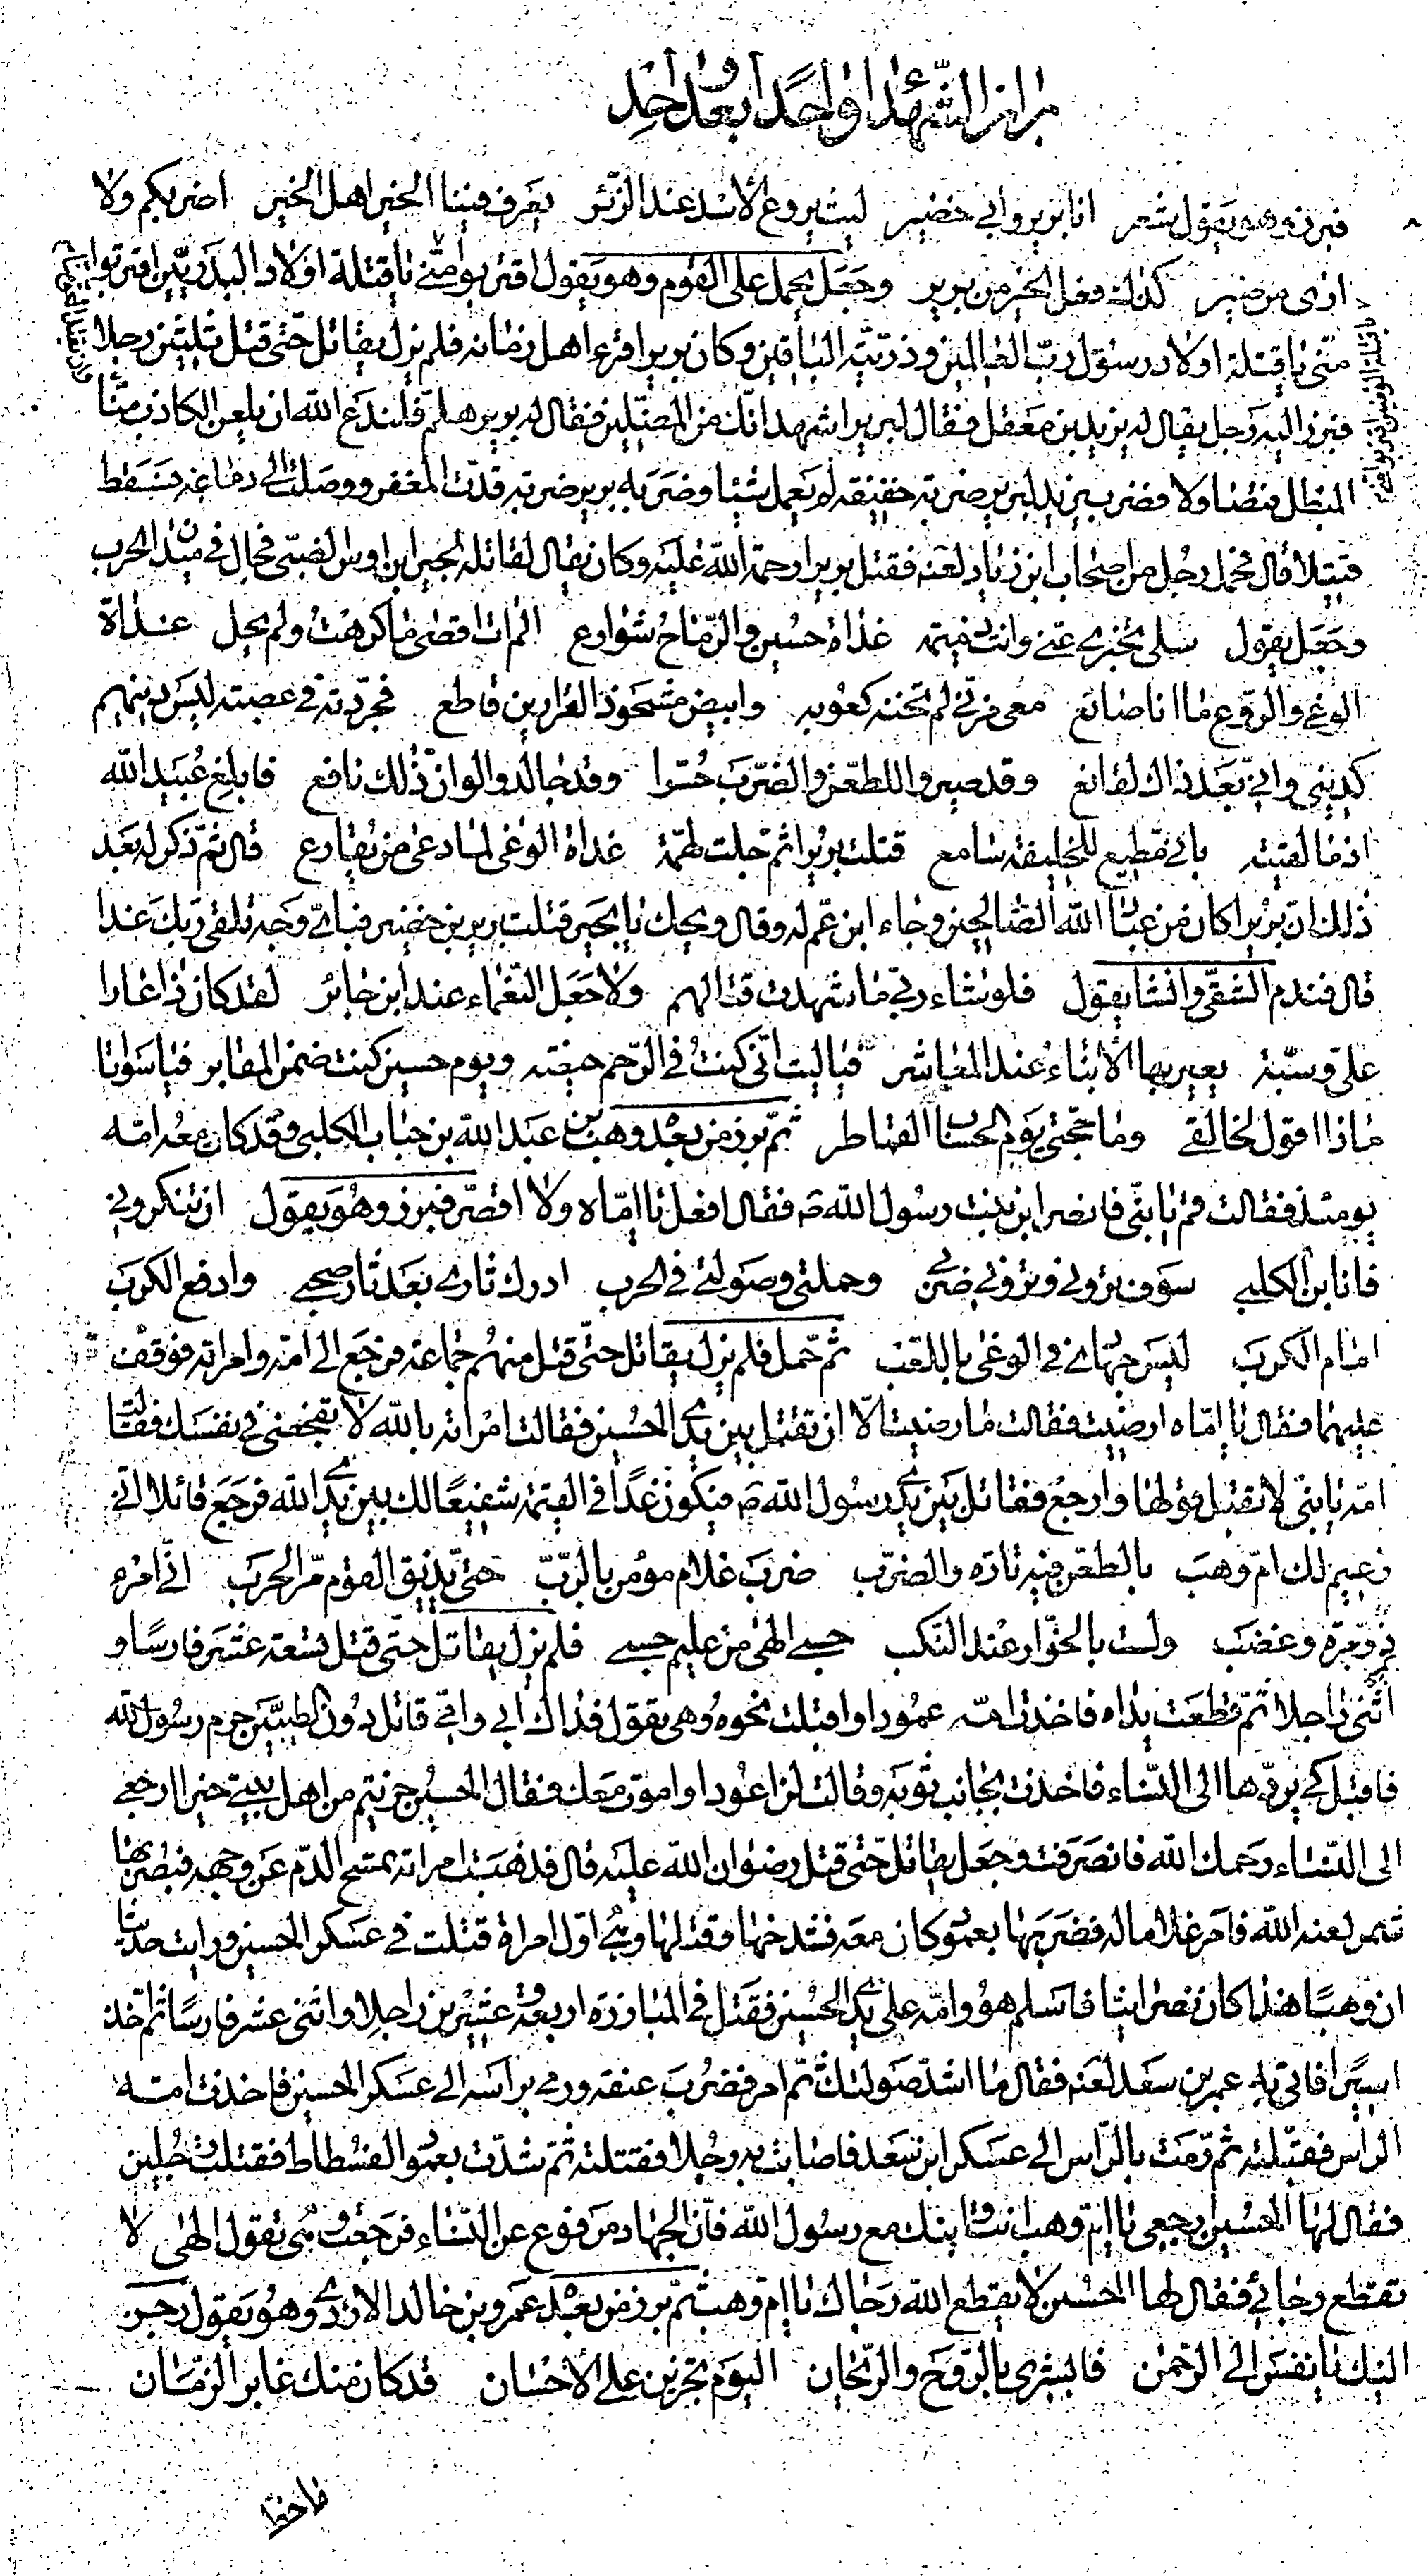 براز الشهداء واحدا بعد واحد
فبرز وهو يقول شعر انا برير وابي خضير ليث يروع الاسد عند الزئر يعرف فينا الخير اهل الخير اضربكم ولا
ارى من ضير كذاك فعل الخير من برير وجعل يحمل على القوم وهو يقول اقتربوا منّي يا قتلة اولاد البدريّين اقتربوا
منّي يا قتلة اولاد رسول ربّ العالمين وذرّيّته الباقين وكان برير اقرء اهل زمانه فلم يزل يقاتل حتّى قتل ثلثين رجلا
فبرز اليه رجل يقال له يزيد بن معقل فقال لبرير اشهد انّك من المضلّين فقال له برير هلمّ فلندع الله ان يلعن الكاذب منّا
المبطل فتصاولا فضرب يزيد لبرير ضربة خفيفة لم يعمل شيئا وضربه برير ضربة قدّت المغفر ووصلت الى دماغه فسقط
قتيلا قال فحمل رجل من اصحاب ابن زياد لعنه فقتل بريرا رحمة الله عليه وكان يقال لقاتله بجير ابن اوس الضبّي فجال في ميدان الحرب
وجعل يقول سلي تخبري عنّي وانت ذميمة غداة حسين والرّماح شوارع الم ات اقصى ما كرهت ولم يحل غداة
الوغى والرّوع ما انا صانع معي مزنيّ لم تخنه كعوبه وابيض مشحوذ الغرارين قاطع فجرّدته في عصبة ليس دينهم
كديني وانّي بعد ذاك لقانع وقد صبروا للطعن والضّرب حسّرا وقد جالدوا لو انّ ذلك نافع فابلغ عبيد الله
اذ ما لقيته باني مطيع للخليفة سامع قتلت بريرا ثم جلت لهمّة غداة الوغى لمّا دعى من يقارع قال ثم ذكر له بعد
ذلك ان بريرا كان من عباد الله الصّالحين وجاء ابن عم له وقال ويحك يا بجير قتلت برير بن خضير فباي وجه تلقى ربك غدا
قال فندم الشقي وانشا يقول فلو شاء ربي ما شهدت قتالهم ولا جعل النّعماء عند ابن جائر لقد كان ذا عارا
علي وسبّة يعير بها الابناء عند المعاشر فيا ليت انّي كنت في الرّحم حيضة ويوم حسين كنت ضمن المقابر فيا سواتا
ماذا اقول لخالقي وما حجّتي يوم الحساب القماطر ثم برز من بعده وهب بن عبد الله بن حباب الكلبي وقد كان معه امّه
يومئذ فقالت قم يا بنّي فانصر ابن بنت رسول الله ص فقال افعل يا امّاه ولا اقصّر فبرز وهو يقول ان تنكروني
فانا بن الكلبي سوف تروني وترون ضربي وحملتي وصولتي في الحرب ادرك ثاري بعد ثار صحبي وادفع الكرب
امام الكرب ليس جهادي في الوغى باللعب ثم حمل فلم يزل يقاتل حتّى قتل منهم جماعة فرجع الى امّه وامراته فوقف
عليهما فقال يا امّاه ارضيت فقالت ما رضيت الّا ان تقتل بين يدي الحسين فقالت امراته بالله لا تفجعني في نفسك فقالت
امّه يا بنّي لا تقبل قولها وارجع فقاتل بين يدي رسول الله ص فيكون غدا في القيمة شفيعا لك بين يدي الله فرجع قائلا انّي
زعيم لك امّ وهب بالطعن فيه تارة والضّرب ضرب غلام مؤمن بالرّبّ حتّى يذيق القوم مرّ الحرب انّي امرء
ذو مرّة وعضب ولست بالخوّار عند النّكب حسبي الهي من عليم حسبي فلم يزل يقاتل حتّى قتل تسعة عشر فارسا و
اثني عشر راجلا ثم قطعت يداه فاخذت امّه عمودا واقبلت نحوه وهي تقول فداك ابي وامّي قاتل دون الطيبّين حرم رسول الله
فاقبل كي يردّها الى النّساء فاخذت بجانب ثوبه وقالت لن اعود او اموت معك فقال الحسين جزيتم من اهل بيتي خيرا ارجعي
الى النّساء رحمك الله فانصرفت وجعل يقاتل حتّى قتل رضوان الله عليه قال فذهبت امراته تمسح الدّم عن وجهه فبصر بها
شمر لعنه الله فامر غلاما له فضربها بعمود كان معه فشدخها وقتلها وهي اوّل امراة قتلت في عسكر الحسين ورايت حديثا
ان وهبا هذا كان نصرانيّا فاسلم هو وامّه على يدي الحسين فقتل في المبارزة اربعة وعشرين راجلا واثنى عشر فارسا ثم اخذ
اسيرا فاتي به عمر بن سعد لعنه فقال ما اشدّ صولتك ثمّ امر فضرب عنقه ورمي براسه الى عسكر الحسين فاخذت امّه
الراس فقبّلته ثم رمت بالرّاس الى عسكر ابن سعد فاصابت به رجلا فقتلته ثمّ شدّت بعمود الفسطاط فقتلت رجلين
فقال لها الحسين ارجعي يا امّ وهب انت وابنك مع رسول الله فانّ الجهاد مرفوع عن النّساء فرجعت وهي تقول الهي لا
تقطع رجائي فقال لها الحسين لا يقطع الله رجاك يا امّ وهب ثمّ برز من بعده عمرو بن خالد الازدي وهو يقول رجز
اليك يا نفس الى الرّحمن فابشري بالرّوح والرّيحان اليوم تجزين على الاحسان قد كان منك غابر الزّمان